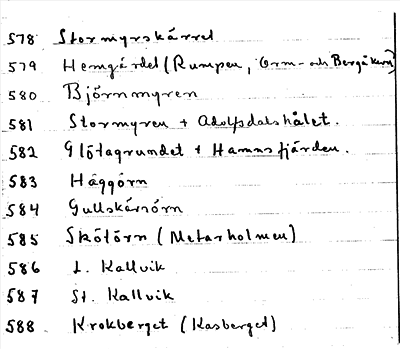 578 Stormyrskärret
579 Hemgärdet (Rumpen, Orm- och Bergåkern)
580 Björnmyren
581 Stormyren + Adolfsdalshålet.
582 Glötagrundet + Hamnsfjärden.
583 Häggörn
584 Gullskärsörn
585 Skötörn (Metarholmen)
586 L. Kallvik
587 St. Kallvik
588 Krokberget (Kasberget)